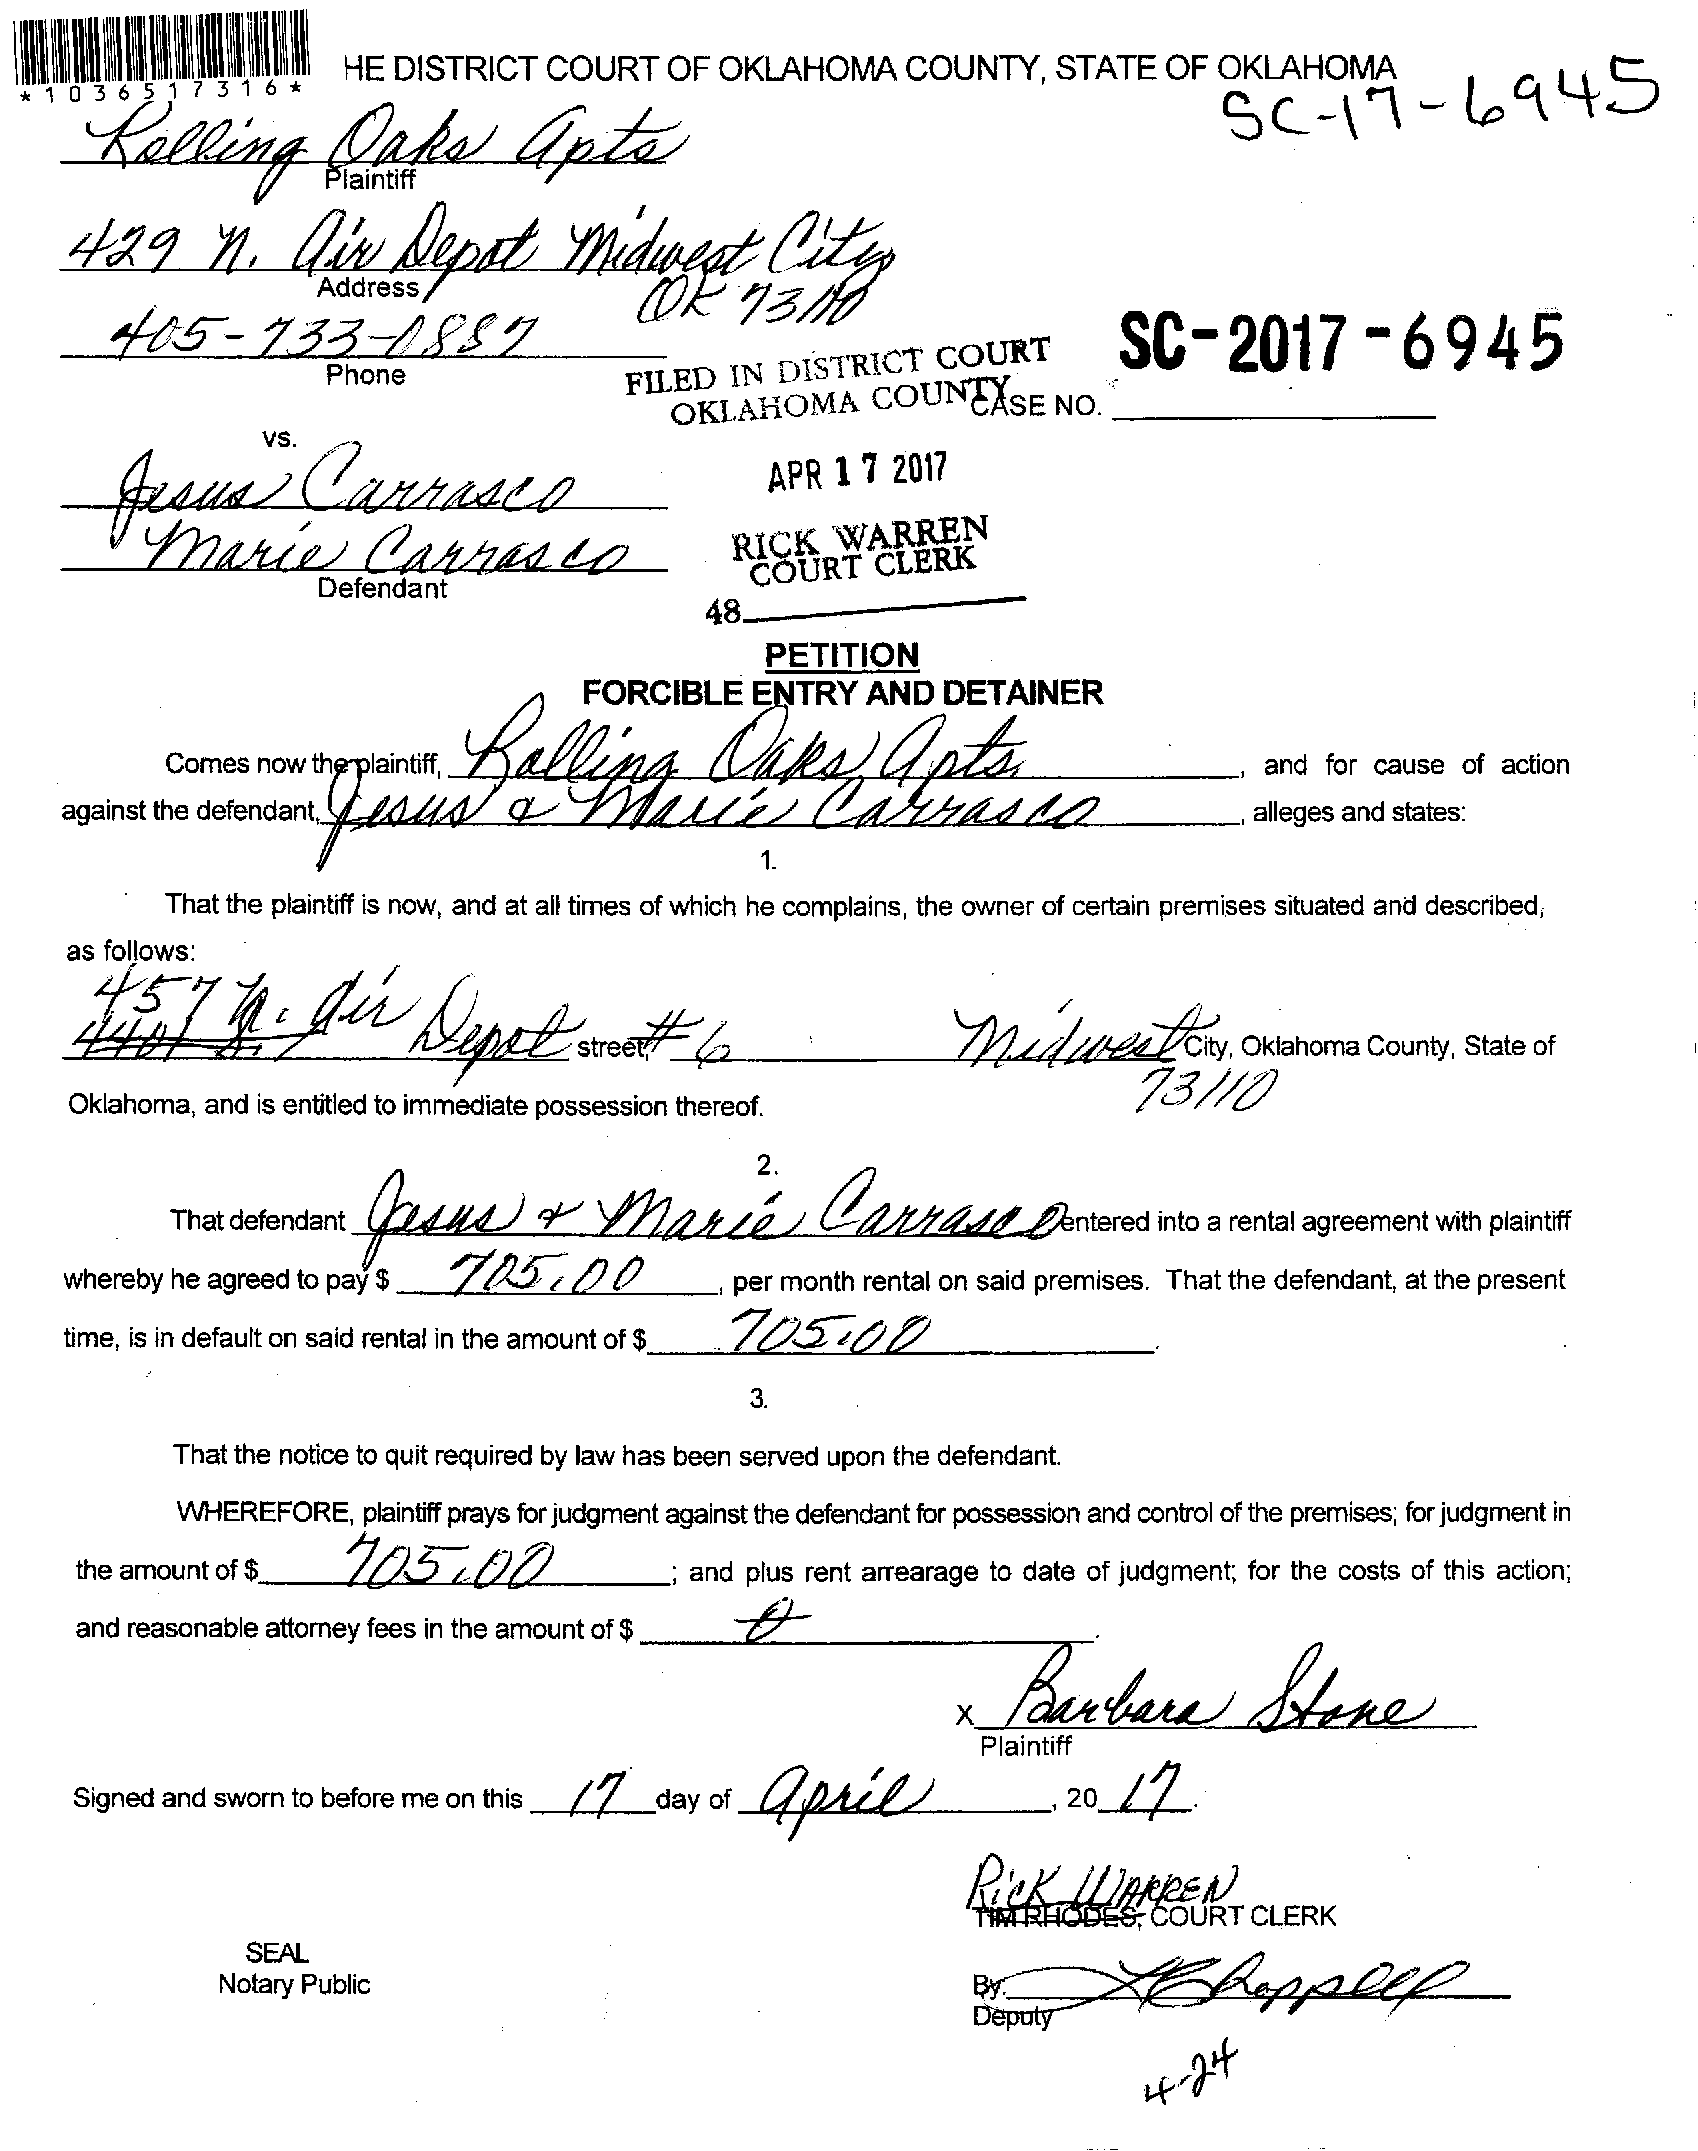 *1036517316*
HE DISTRICT COURT OF OKLAHOMA COUNTY, STATE OF OKLAHOMA
SC-17-6945
Rolling Oaks Apts
Plaintiff
429 N. Air Depot Midwest City
Address
OK 73110
405-733-0887
Phone
SC-2017-6945
FILED IN DISTRICT COURT
OKLAHOMA COUNTY
CASE NO.
vs.
Jesus Carrasco
APR 17 2017
Marie Carrasco
Defendant
RICK WARREN
COURT CLERK
48
PETITION
FORCIBLE ENTRY AND DETAINER
Comes now the plaintiff, Rolling Oaks Apts, and for cause of action
against the defendant, Jesus & Marie Carrasco, alleges and states:
1.
That the plaintiff is now, and at all times of which he complains, the owner of certain premises situated and described,
as follows:
457 N. Air Depot street, # 6 Midwest City, Oklahoma County, State of
73110
Oklahoma, and is entitled to immediate possession thereof.
2.
That defendant Jesus & Marie Carrasco entered into a rental agreement with plaintiff
whereby he agreed to pay $ 705.00, per month rental on said premises. That the defendant, at the present
time, is in default on said rental in the amount of $ 705.00.
3.
That the notice to quit required by law has been served upon the defendant.
WHEREFORE, plaintiff prays for judgment against the defendant for possession and control of the premises; for judgment in
the amount of $ 705.00; and plus rent arrearage to date of judgment; for the costs of this action;
and reasonable attorney fees in the amount of $ 0.
x Barbara Stone
Plaintiff
Signed and sworn to before me on this 17 day of April, 20 17.
Rick WARREN
TIM RHODES, COURT CLERK
SEAL
Notary Public
By: Chappell
Deputy
4-24